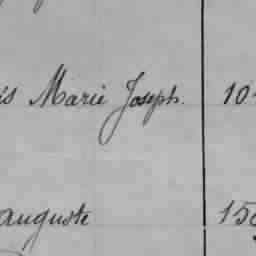 is Marie Joseph. 10
auguste 15